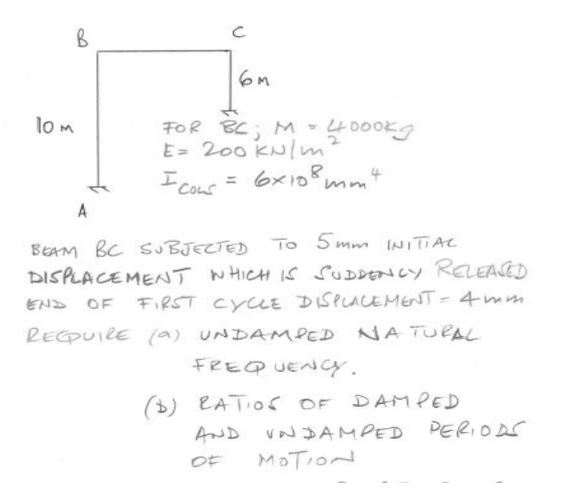 B
C
6M
10 M
FOR BC; M = 4000Kg
E = 200 KN/m²
I COLS = 6x10⁸ mm⁴
A
BEAM BC SUBJECTED TO 5mm INITIAL
DISPLACEMENT WHICH IS SUDDENLY RELEASED
END OF FIRST CYCLE DISPLACEMENT = 4mm
REQUIRE (a) UNDAMPED NATURAL
FREQUENCY.
(b) RATIOS OF DAMPED
AND UNDAMPED PERIODS
OF MOTION